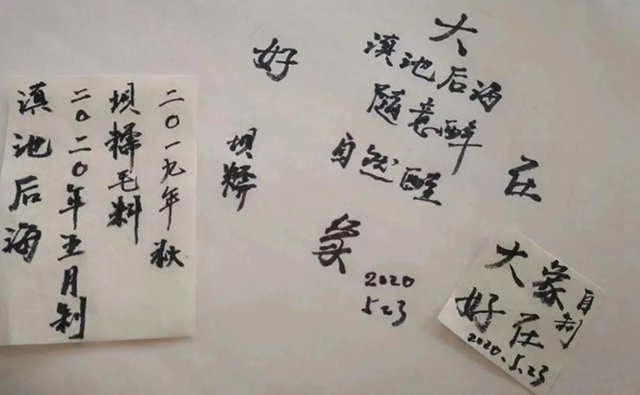 二〇一九年秋
坝糯毛料
二〇二〇年五月制
滇池后海
大
好
滇池后海
隨意醉
自然醒
坝糯
在
家
2020
5.23
大家
好在
自制
2020.5.23